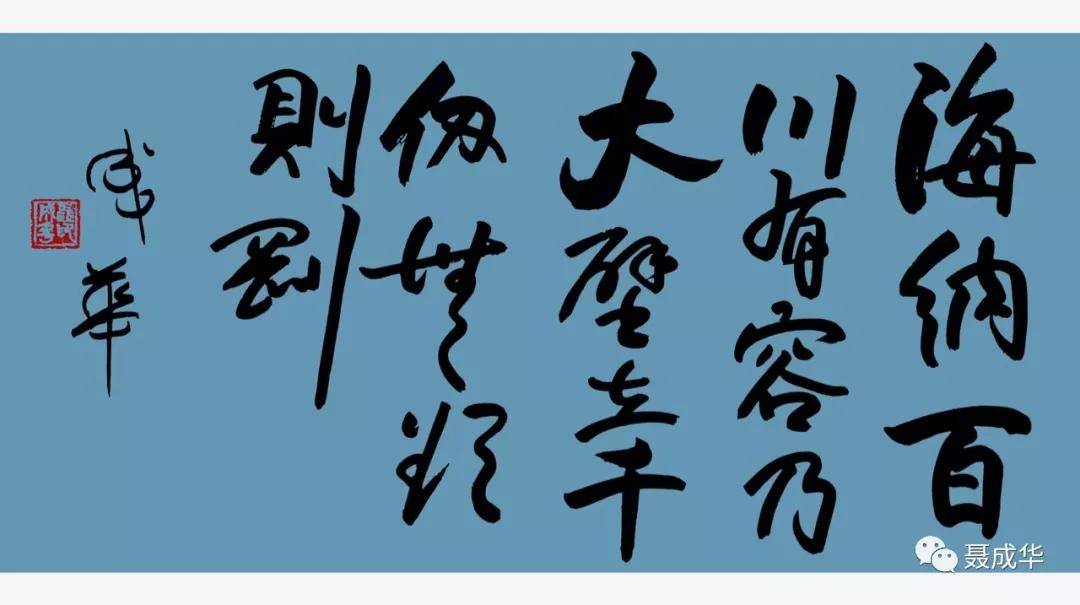 海纳百
川有容乃
大壁立千
仞無欲
則剛
成華
聂成华